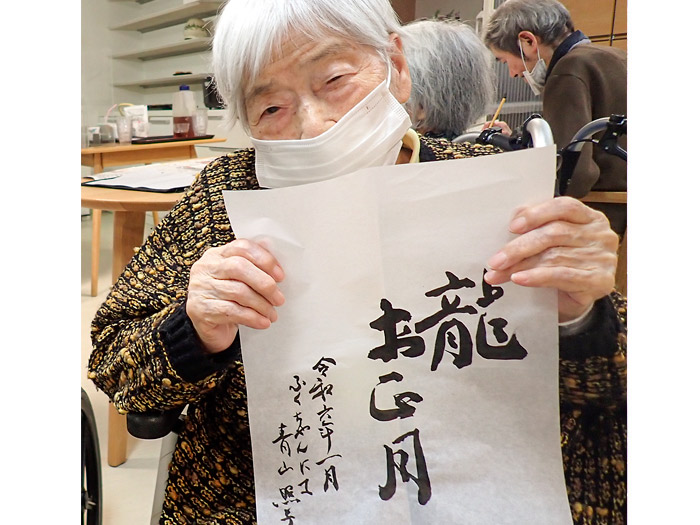 龍
お正月
令和六年一月
ふくちゃんにて
青山 照